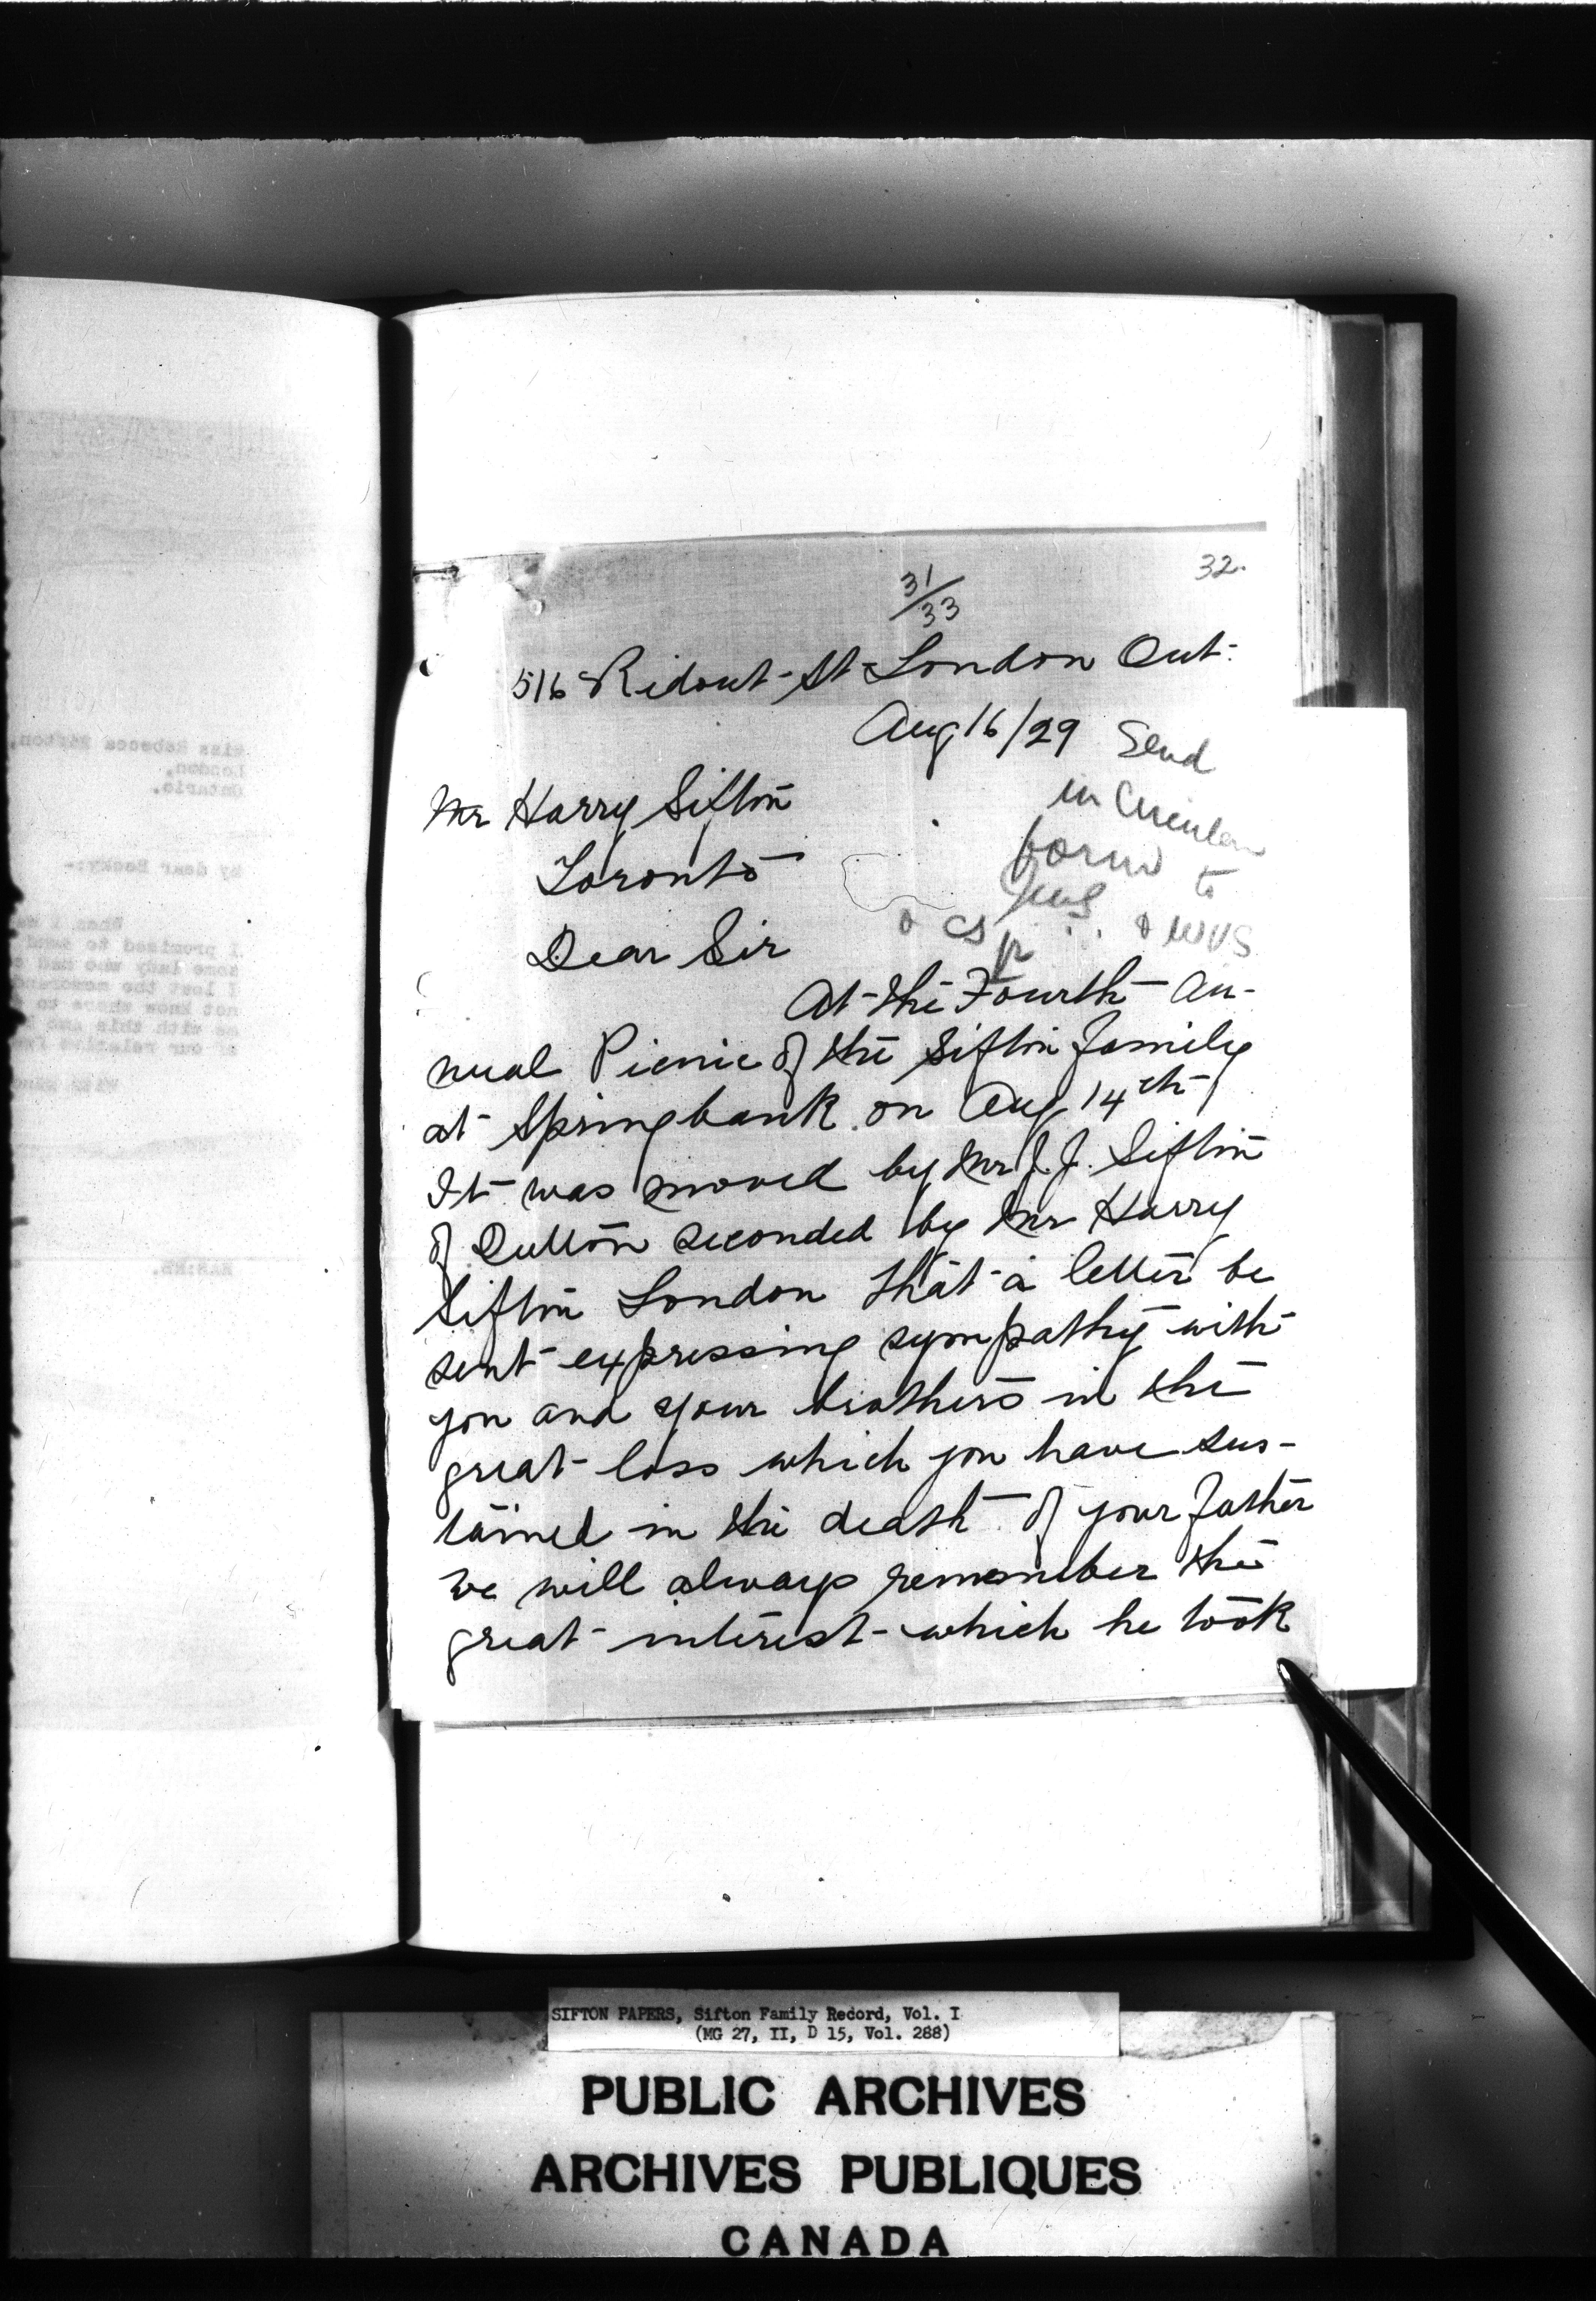 32.
31/33
516 Ridout St London Ont.
Aug 16/29
Send
in Circular
form to
& CS & WVS
Mr Harry Sifton
Toronto
Dear Sir
At the Fourth An-
nual Picnic of the Sifton family
at Springbank on Aug 14th
It was moved by Mr J. J. Sifton
of Dutton seconded by Mr Harry
Sifton London that a letter be
sent expressing sympathy with
you and your brothers in the
great loss which you have sus-
tained in the death of your father
We will always remember the
great interest which he took
Miss Rebecca Sifton,
London,
Ontario.
My dear Becky:-
When I
I promised to send
some lady who had
I lost the memorand
not know where to
me with this and
of our relative
With kind
HAS:ME.
SIFTON PAPERS, Sifton Family Record, Vol. I
(MG 27, II, D 15, Vol. 288)
PUBLIC ARCHIVES
ARCHIVES PUBLIQUES
CANADA